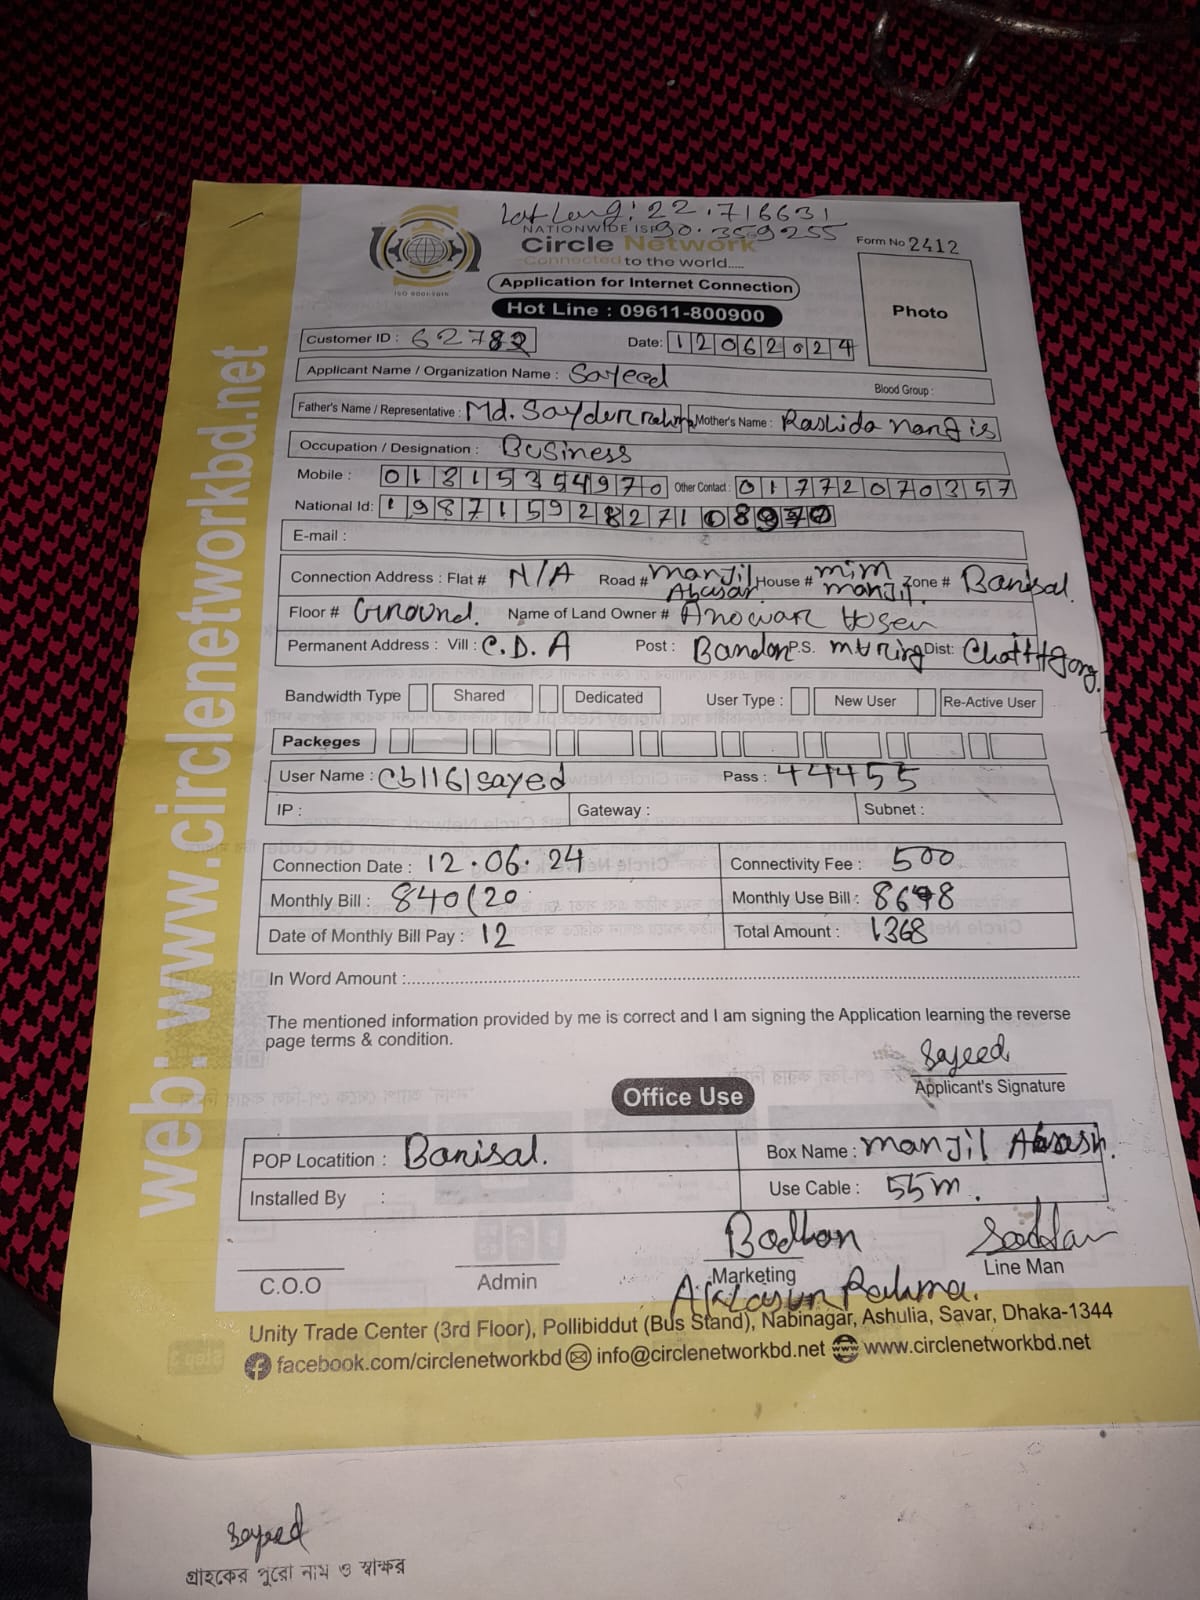 Lat Long: 22.716631
90.359255
NATIONWIDE ISP
Circle Network
Connected to the world.....
ISO 9001:2015
Form No 2412
Application for Internet Connection
Hot Line : 09611-800900
Photo
Customer ID : 62782
Date: 12062024
Applicant Name / Organization Name : Sayeed
Blood Group :
Father's Name / Representative : Md. Sayderrahma Mother's Name : Rashida nargis
Occupation / Designation : Business
Mobile : 01315354970 Other Contact : 01772070357
National Id: 1987159282710
E-mail :
Connection Address : Flat # N/A Road # Manjil Abasar House # mim manjil. Zone # Barisal.
Floor # Ground. Name of Land Owner # Anowar Hosen
Permanent Address : Vill : C.D.A Post : Bandor P.S. Dist: Chattgong.
Bandwidth Type Shared Dedicated User Type : New User Re-Active User
Packeges
User Name : cb1161sayed Pass : 44455
IP : Gateway : Subnet :
Connection Date : 12.06.24 Connectivity Fee : 500
Monthly Bill : 840/20 Monthly Use Bill :
Date of Monthly Bill Pay : 12 Total Amount : 1368
In Word Amount :
The mentioned information provided by me is correct and I am signing the Application learning the reverse
page terms & condition.
Sayeed
Applicant's Signature
Office Use
POP Locatition : Barisal. Box Name : Manjil
Installed By : Use Cable : 55m.
Bodhon
C.O.O Admin Marketing Line Man
Unity Trade Center (3rd Floor), Pollibiddut (Bus Stand), Nabinagar, Ashulia, Savar, Dhaka-1344
facebook.com/circlenetworkbd info@circlenetworkbd.net www.circlenetworkbd.net
web: www.circlenetworkbd.net
Sayeed
গ্রাহকের পুরো নাম ও স্বাক্ষর